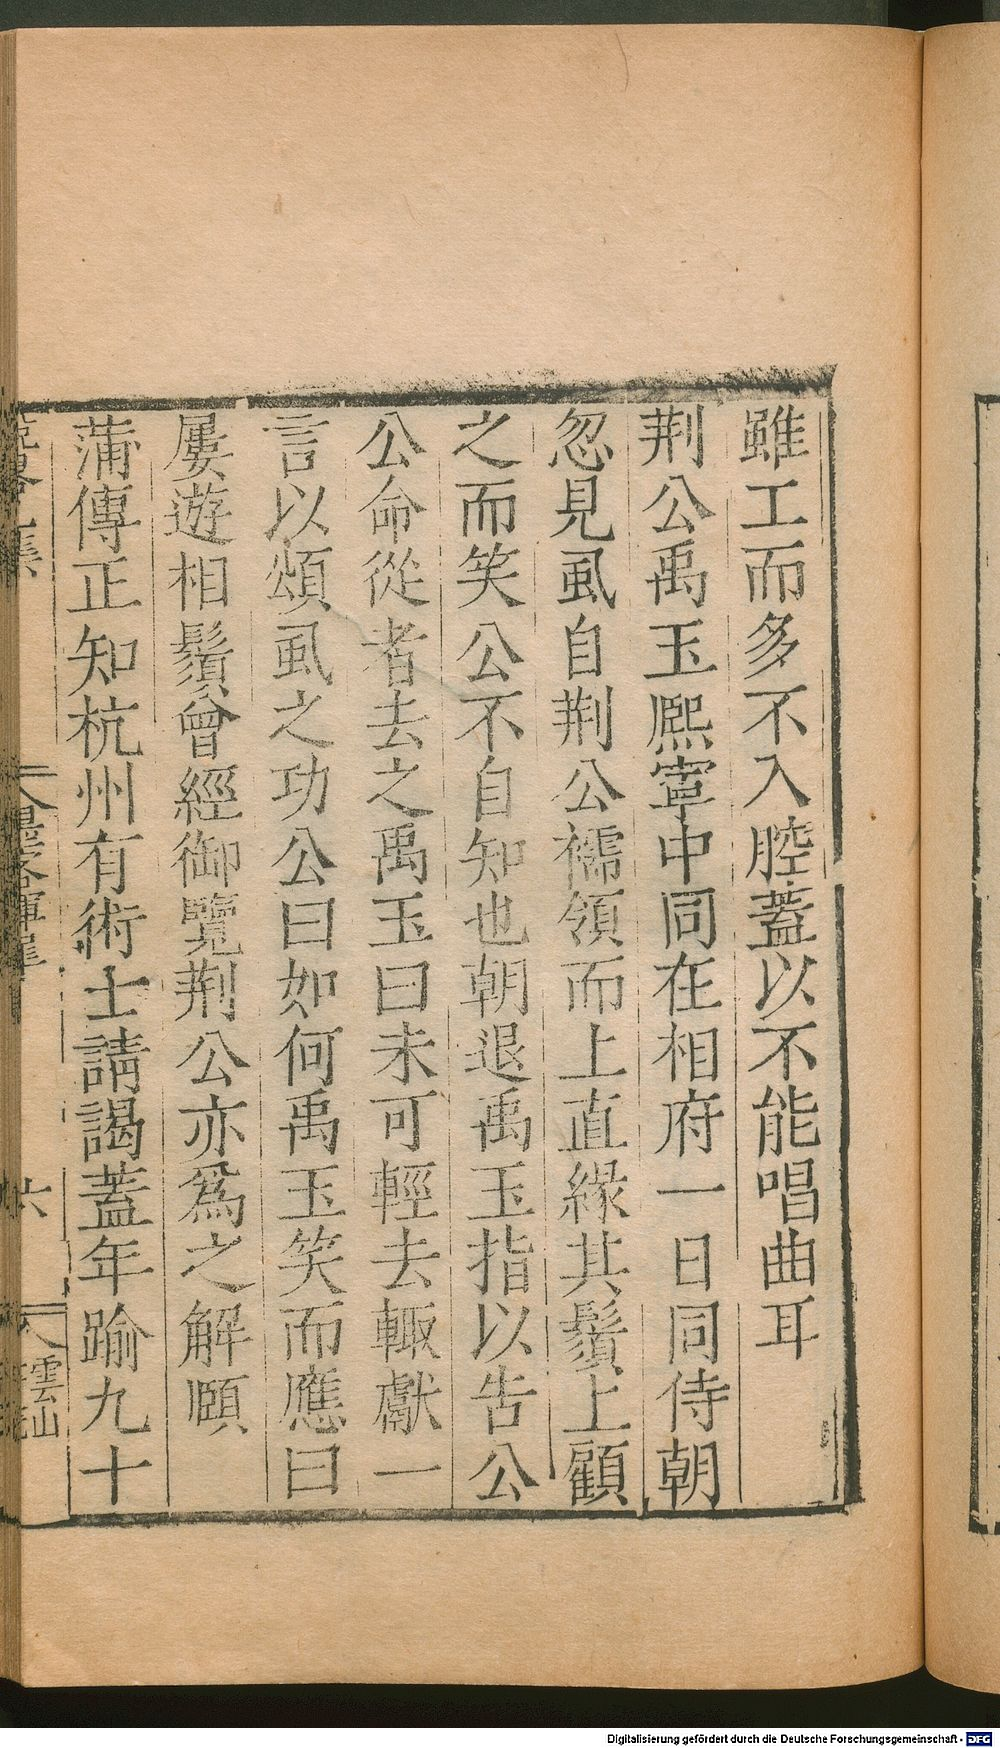 雖工而多不入腔蓋以不能唱曲耳
荆公禹玉熈寧中同在相府一日同侍朝
忽見虱自荆公襦領而上直緣其鬚上顧
之而笑公不自知也朝退禹玉指以告公
公命從者去之禹玉曰未可輕去輙獻一
言以頌虱之功公曰如何禹玉笑而應曰
屢遊相鬚曾經御覽荆公亦爲之解頤
蒲傳正知杭州有術士請謁蓋年踰九十
墨客揮犀
六
雲山
Digitalisierung gefördert durch die Deutsche Forschungsgemeinschaft - DFG